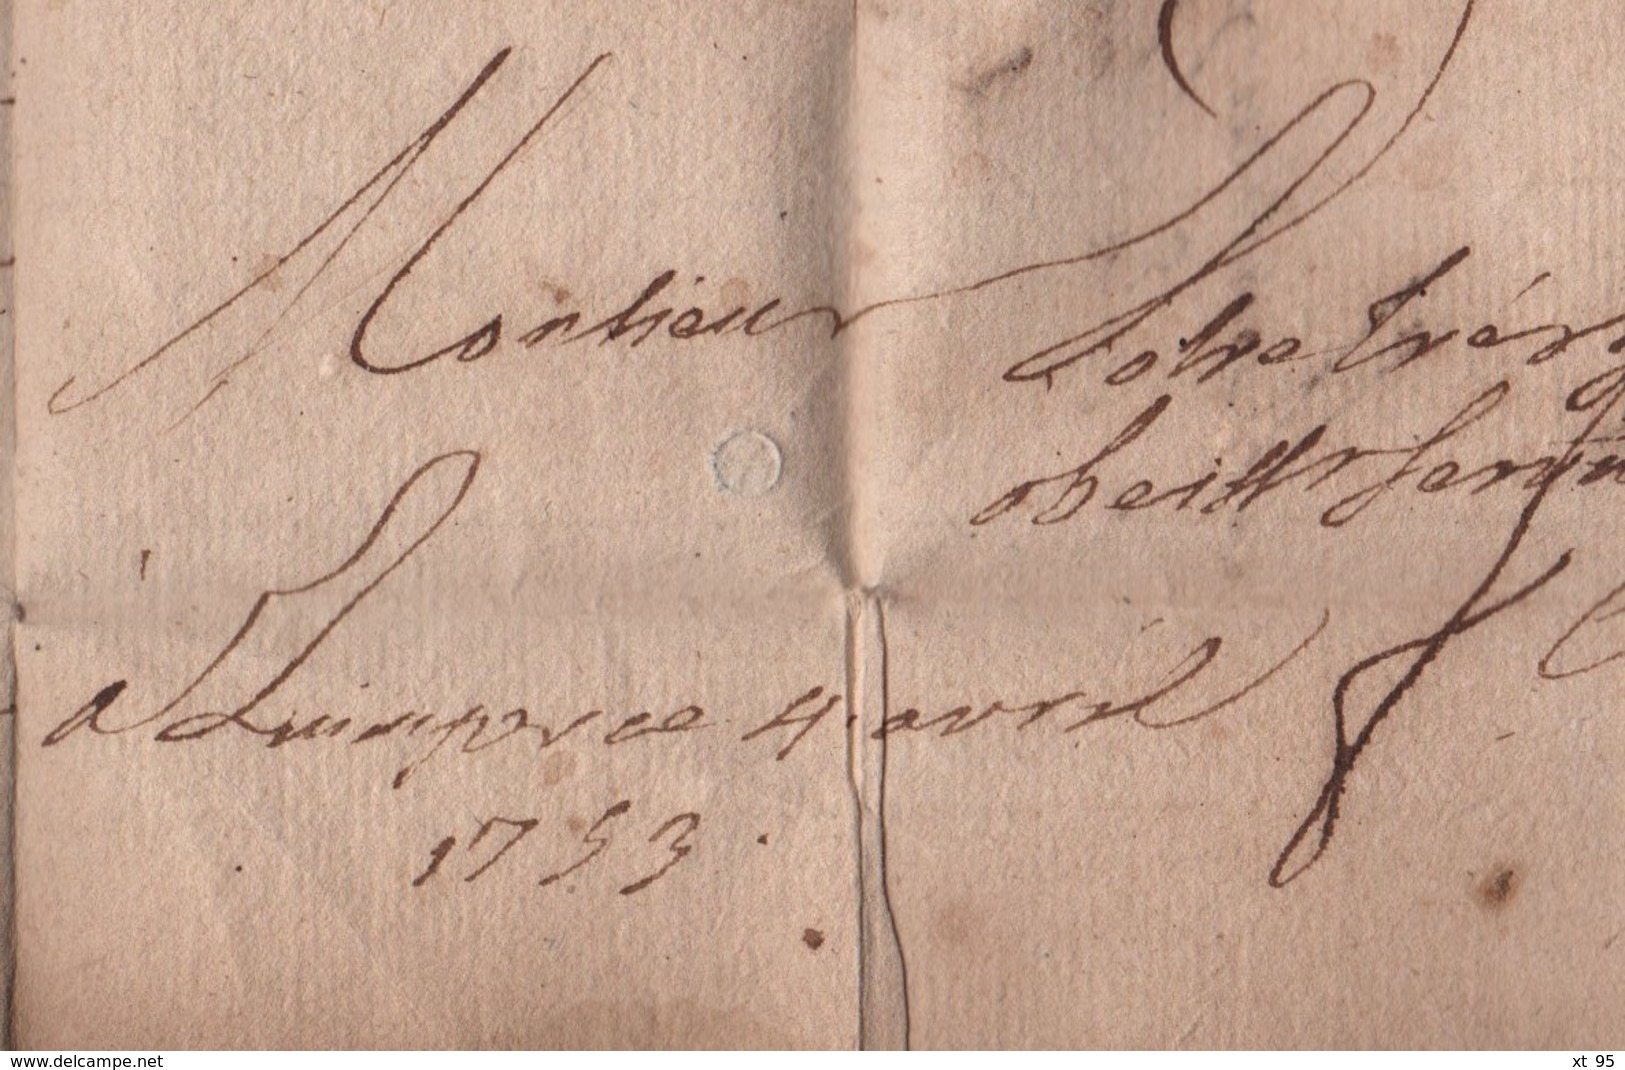 Monsieur Votre tres
obeissr servi
a Quimperce 4 avril
1753.
www.delcampe.net
xt 95